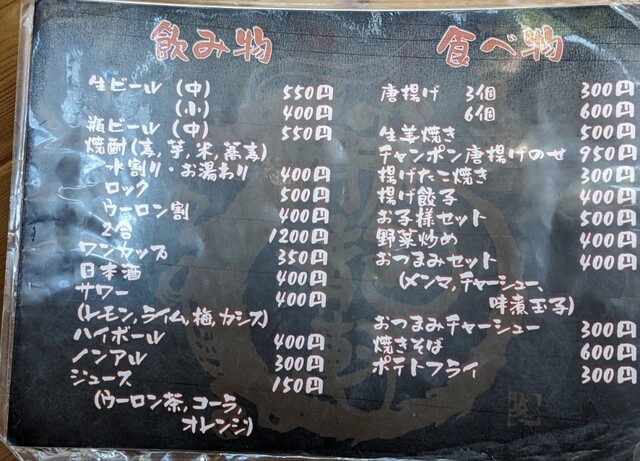 飲み物
生ビール (中) 550円
(小) 400円
瓶ビール (中) 550円
焼酎(麦,芋,米,蕎麦)
水割り・お湯わり 400円
ロック 500円
ウーロン割 400円
2合 1200円
ワンカップ 350円
日本酒 400円
サワー 400円
(レモン,ライム,梅,カシス)
ハイボール 400円
ノンアル 300円
ジュース 150円
(ウーロン茶,コーラ,
オレンジ)
食べ物
唐揚げ 3個 300円
6個 600円
生姜焼き 500円
チャンポン唐揚げのせ 950円
揚げたこ焼き 300円
揚げ餃子 400円
お子様セット 500円
野菜炒め 400円
おつまみセット 400円
(メンマ,チャーシュー、
味煮玉子)
おつまみチャーシュー 300円
焼きそば 600円
ポテトフライ 300円